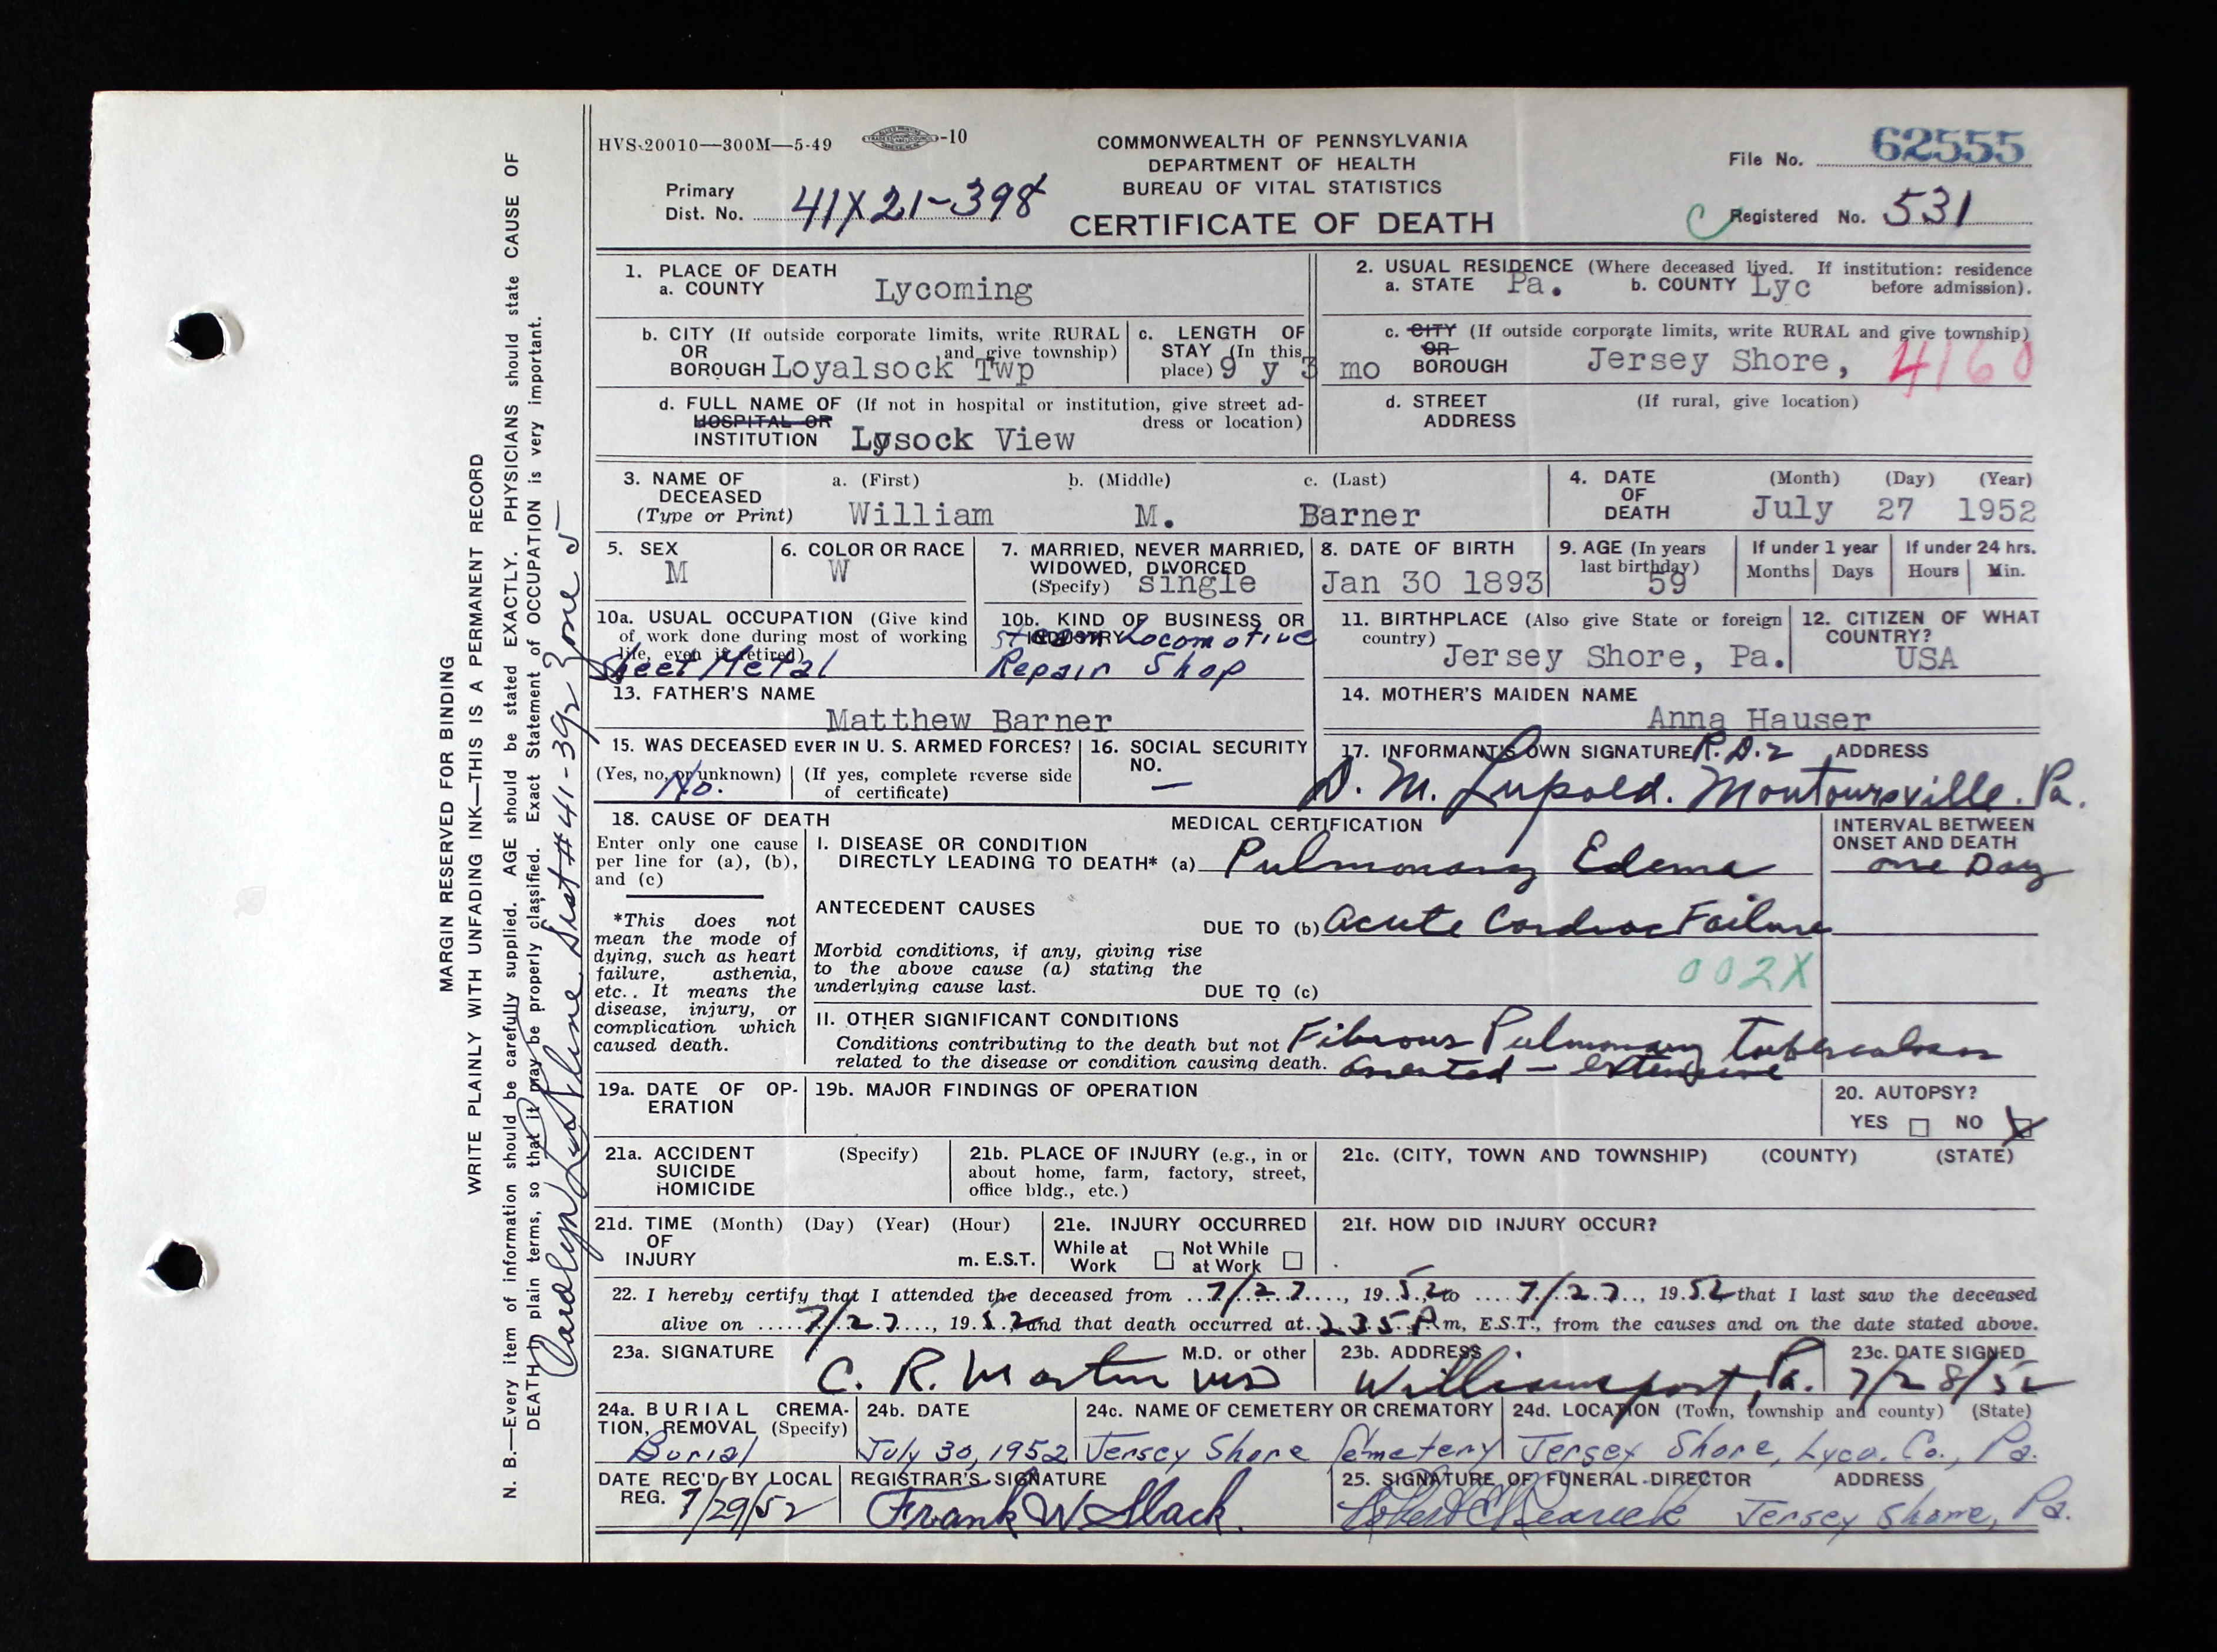 HVS-20010—300M—5-49 -10
COMMONWEALTH OF PENNSYLVANIA
DEPARTMENT OF HEALTH
BUREAU OF VITAL STATISTICS
CERTIFICATE OF DEATH
File No. 62555
Primary
Dist. No. 41X21-398
Registered No. 531
1. PLACE OF DEATH
a. COUNTY Lycoming
2. USUAL RESIDENCE (Where deceased lived. If institution: residence
a. STATE Pa. b. COUNTY Lyc before admission).
b. CITY (If outside corporate limits, write RURAL
OR and give township)
BOROUGH Loyalsock Twp
c. LENGTH OF
STAY (In this
place) 9 y 3 mo
c. CITY (If outside corporate limits, write RURAL and give township)
OR
BOROUGH Jersey Shore, 4160
d. FULL NAME OF (If not in hospital or institution, give street ad-
HOSPITAL OR dress or location)
INSTITUTION Lysock View
d. STREET (If rural, give location)
ADDRESS
3. NAME OF a. (First) b. (Middle) c. (Last)
DECEASED
(Type or Print) William M. Barner
4. DATE (Month) (Day) (Year)
OF
DEATH July 27 1952
5. SEX
M
6. COLOR OR RACE
W
7. MARRIED, NEVER MARRIED,
WIDOWED, DIVORCED
(Specify) single
8. DATE OF BIRTH
Jan 30 1893
9. AGE (In years
last birthday)
59
If under 1 year
Months Days
If under 24 hrs.
Hours Min.
10a. USUAL OCCUPATION (Give kind
of work done during most of working
life, even if retired)
Sheet Metal
10b. KIND OF BUSINESS OR
INDUSTRY
Steam Locomotive
Repair Shop
11. BIRTHPLACE (Also give State or foreign
country)
Jersey Shore, Pa.
12. CITIZEN OF WHAT
COUNTRY?
USA
13. FATHER'S NAME
Matthew Barner
14. MOTHER'S MAIDEN NAME
Anna Hauser
15. WAS DECEASED EVER IN U. S. ARMED FORCES?
(Yes, no, or unknown) (If yes, complete reverse side
No. of certificate)
16. SOCIAL SECURITY
NO.
—
17. INFORMANT'S OWN SIGNATURE R.D.2 ADDRESS
D. M. Lupold. Montoursville. Pa.
18. CAUSE OF DEATH
Enter only one cause
per line for (a), (b),
and (c)
*This does not
mean the mode of
dying, such as heart
failure, asthenia,
etc.. It means the
disease, injury, or
complication which
caused death.
MEDICAL CERTIFICATION
I. DISEASE OR CONDITION
DIRECTLY LEADING TO DEATH* (a) Pulmonary Edema
INTERVAL BETWEEN
ONSET AND DEATH
one Day
ANTECEDENT CAUSES
DUE TO (b) Acute Cardiac Failure
Morbid conditions, if any, giving rise
to the above cause (a) stating the
underlying cause last.
002X
DUE TO (c)
II. OTHER SIGNIFICANT CONDITIONS
Conditions contributing to the death but not
related to the disease or condition causing death.
Fibrous Pulmonary Tuberculosis
arrested — extensive
19a. DATE OF OP-
ERATION
19b. MAJOR FINDINGS OF OPERATION
20. AUTOPSY?
YES NO X
21a. ACCIDENT (Specify)
SUICIDE
HOMICIDE
21b. PLACE OF INJURY (e.g., in or
about home, farm, factory, street,
office bldg., etc.)
21c. (CITY, TOWN AND TOWNSHIP) (COUNTY) (STATE)
21d. TIME (Month) (Day) (Year) (Hour)
OF
INJURY m. E.S.T.
21e. INJURY OCCURRED
While at Not While
Work at Work
21f. HOW DID INJURY OCCUR?
22. I hereby certify that I attended the deceased from 7/27, 1952 to 7/27, 1952, that I last saw the deceased
alive on 7/27, 1952 and that death occurred at 235 P m, E.S.T., from the causes and on the date stated above.
23a. SIGNATURE M.D. or other
C. R. Martin MD
23b. ADDRESS
Williamsport, Pa.
23c. DATE SIGNED
7/28/52
24a. BURIAL CREMA-
TION, REMOVAL (Specify)
Burial
24b. DATE
July 30, 1952
24c. NAME OF CEMETERY OR CREMATORY
Jersey Shore Cemetery
24d. LOCATION (Town, township and county) (State)
Jersey Shore, Lyco. Co., Pa.
DATE REC'D BY LOCAL
REG. 7/29/52
REGISTRAR'S SIGNATURE
Frank W Slack.
25. SIGNATURE OF FUNERAL DIRECTOR ADDRESS
Robert Jersey Shore, Pa.
MARGIN RESERVED FOR BINDING
WRITE PLAINLY WITH UNFADING INK—THIS IS A PERMANENT RECORD
N. B.—Every item of information should be carefully supplied. AGE should be stated EXACTLY. PHYSICIANS should state CAUSE OF
DEATH in plain terms, so that it may be properly classified. Exact Statement of OCCUPATION is very important.
Dist # 41-392 Zone 5